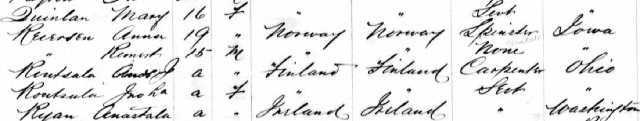 Quinlan Mary 16 F " " Servt "
Reierson Anna 19 " Norway Norway Spinster Iowa
" 15 M " " None "
Routsala a " Finland Finland Carpenter Ohio
Routsala a F " " Servt "
Ryan Anastata a " Ireland Ireland " Washington